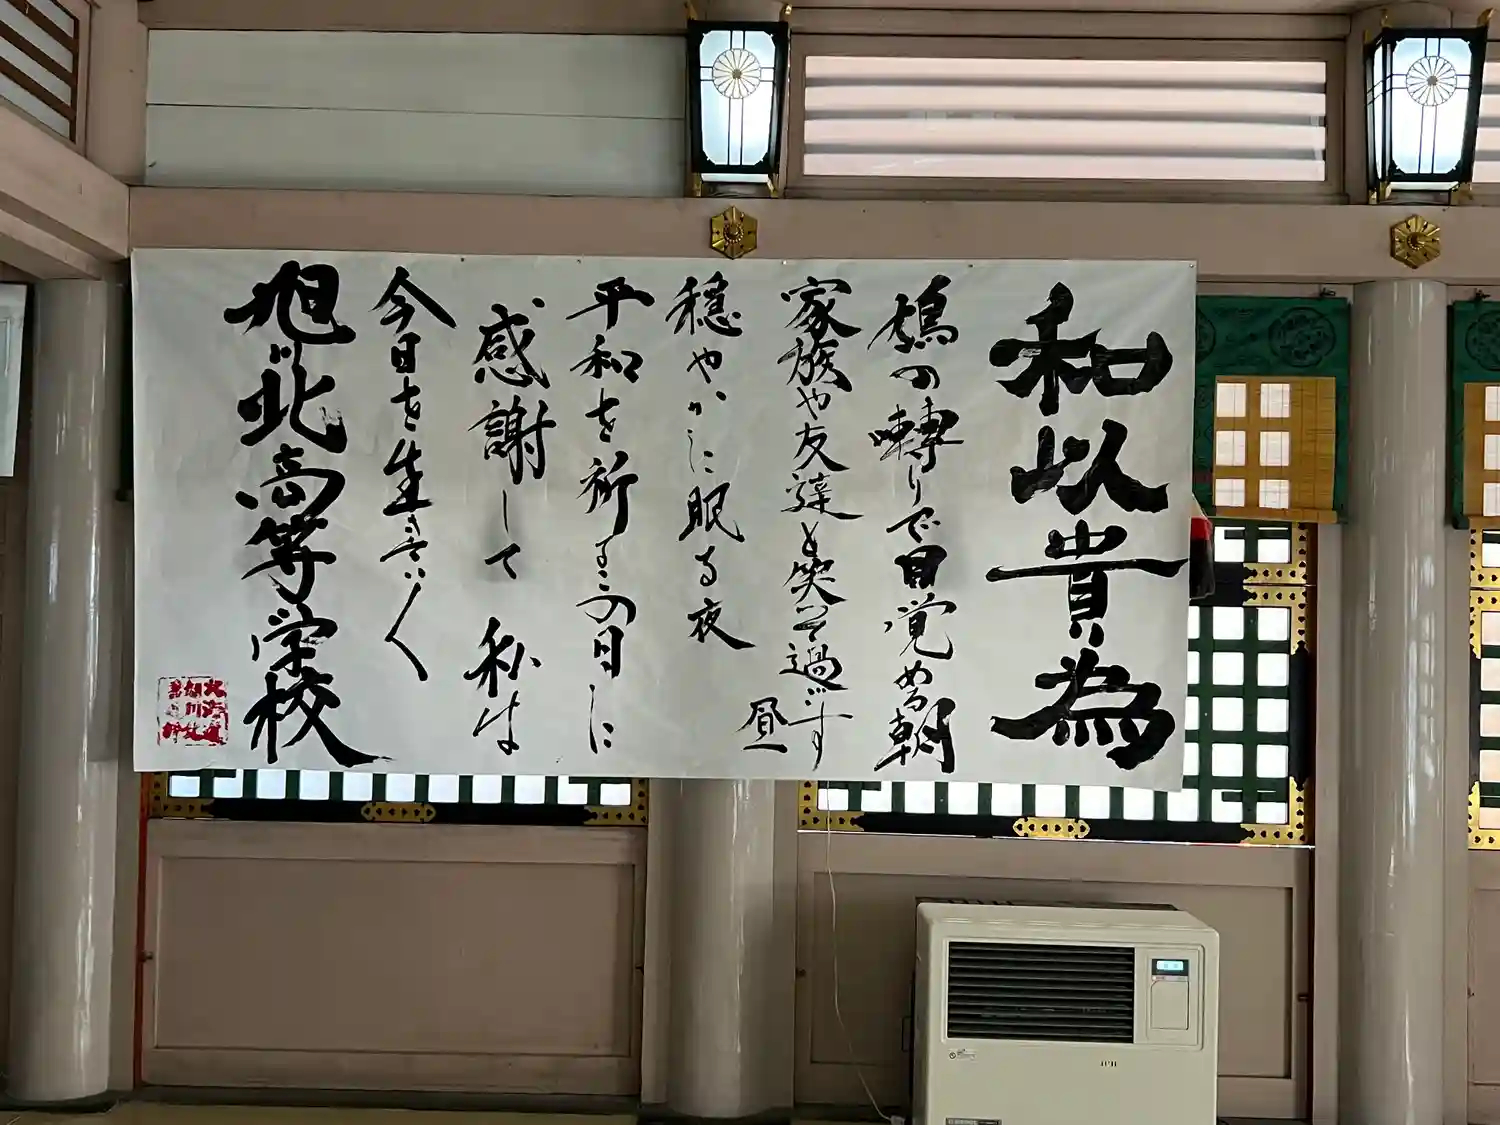 和以貴為
鳩の囀りで目覚める朝
家族や友達と笑って過ごす
昼
穏やかに眠る夜
平和を祈るこの日に
感謝して 私は
今日を生きていく
旭川北高等学校